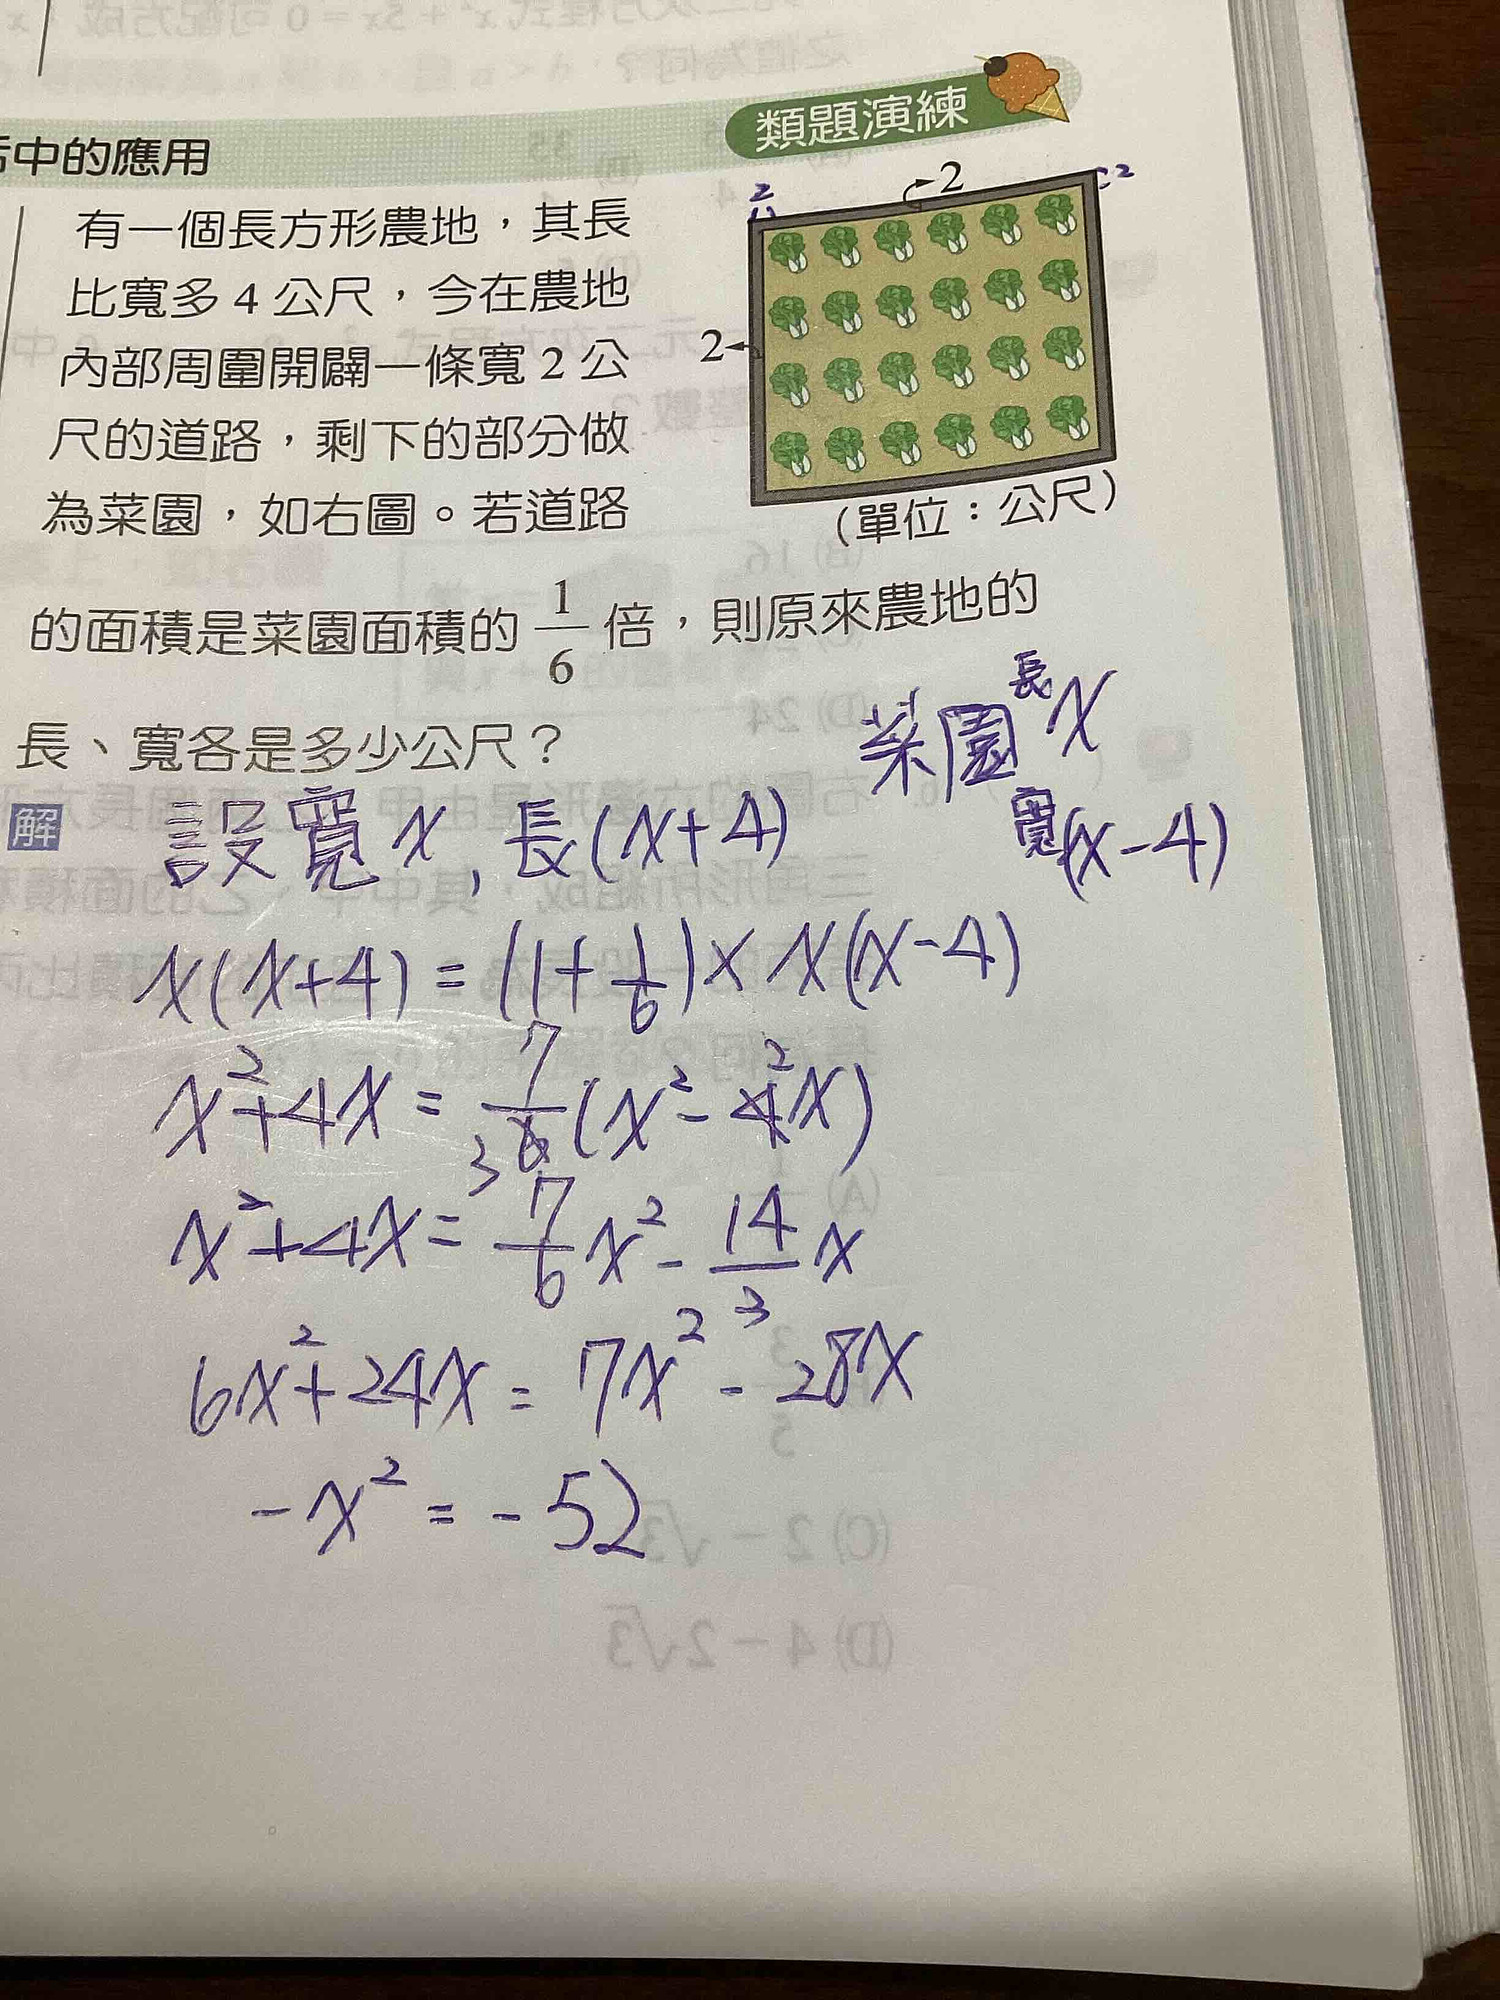 類題演練
中的應用
有一個長方形農地，其長
比寬多 4 公尺，今在農地
內部周圍開闢一條寬 2 公
尺的道路，剩下的部分做
為菜園，如右圖。若道路
的面積是菜園面積的 1/6 倍，則原來農地的
長、寬各是多少公尺？
2
2
2
2
(單位：公尺)
菜園 長 x
寬(x-4)
解
設寬 x, 長(x+4)
x(x+4) = (1+1/6)× x(x-4)
x²+4x = 7/6 (x²-4x) 3 2
x²+4x = 7/6 x² - 14/3 x
6x²+24x = 7x² - 28x
-x² = -52